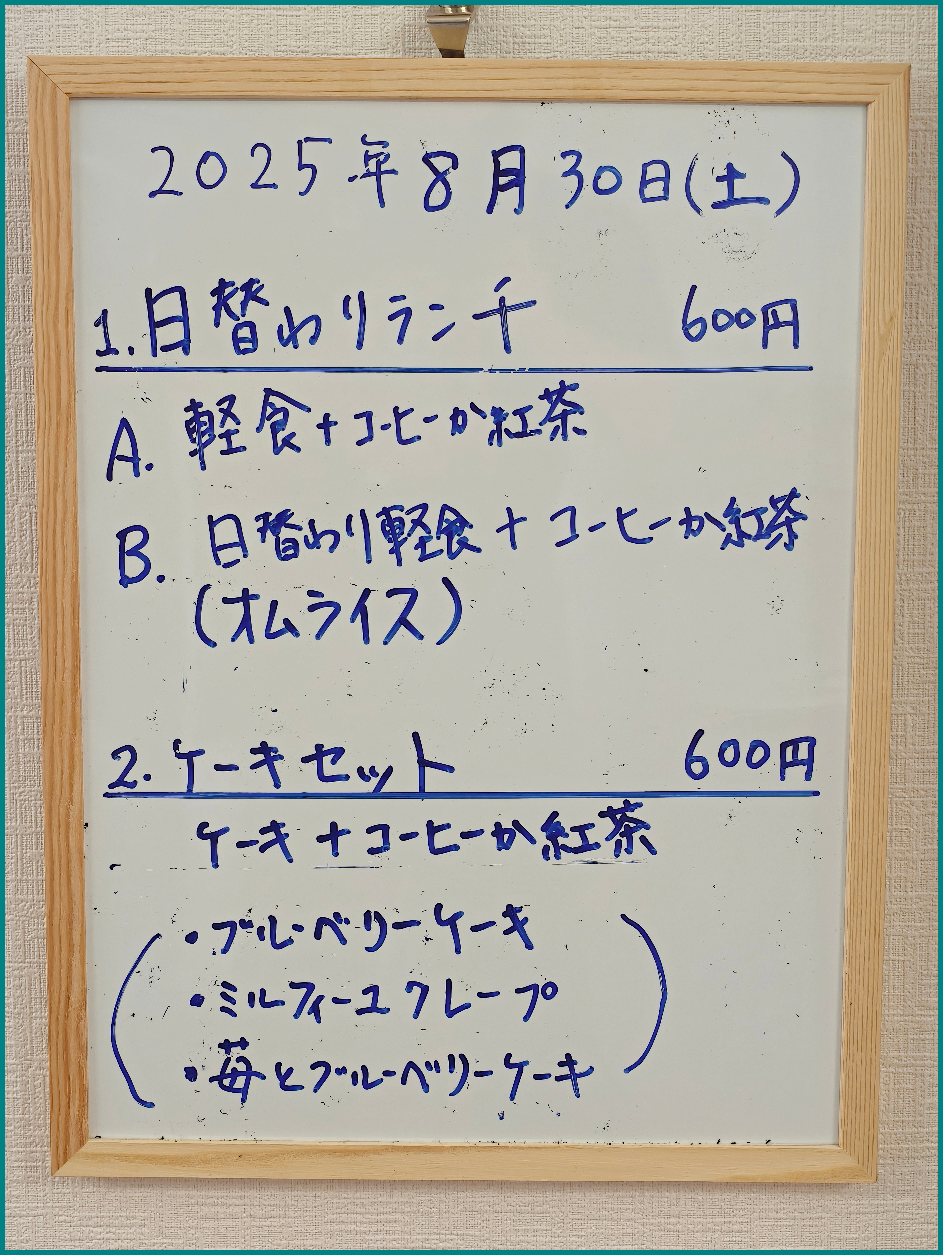 2025年8月30日(土)
1.日替わりランチ 600円
A. 軽食+コーヒーか紅茶
B. 日替わり軽食+コーヒーか紅茶
(オムライス)
2.ケーキセット 600円
ケーキ+コーヒーか紅茶
・ブルーベリーケーキ
・ミルフィーユクレープ
・苺とブルーベリーケーキ